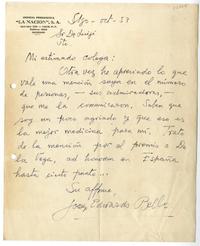 EMPRESA PERIODISTICA
"LA NACION", S. A.
SANTIAGO
Stgo - oct - 53
Sr. De Luigi
Pte
Mi estimado colega:
Otra vez he apreciado lo que
vale una mención suya en el número
de personas, — sus admiradores, —
que me la comunicaron. Saben que
soy un poco agriado y que eso es
la mejor medicina para mí. Trato
de la mención por el premio a De
la Vega, ad honorem en España
hasta siete
Su affmo.
Joaq Edwards Bello